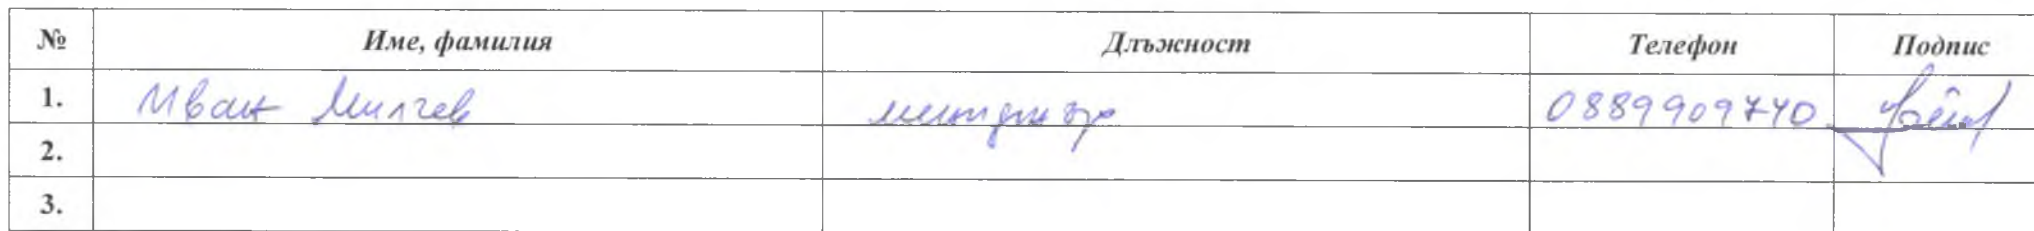 № Име, фамилия Длъжност Телефон Подпис
1. Иван Милчев 0889909740
2.
3.